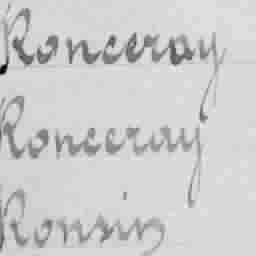 Ronceray
Ronceray
Ronsin